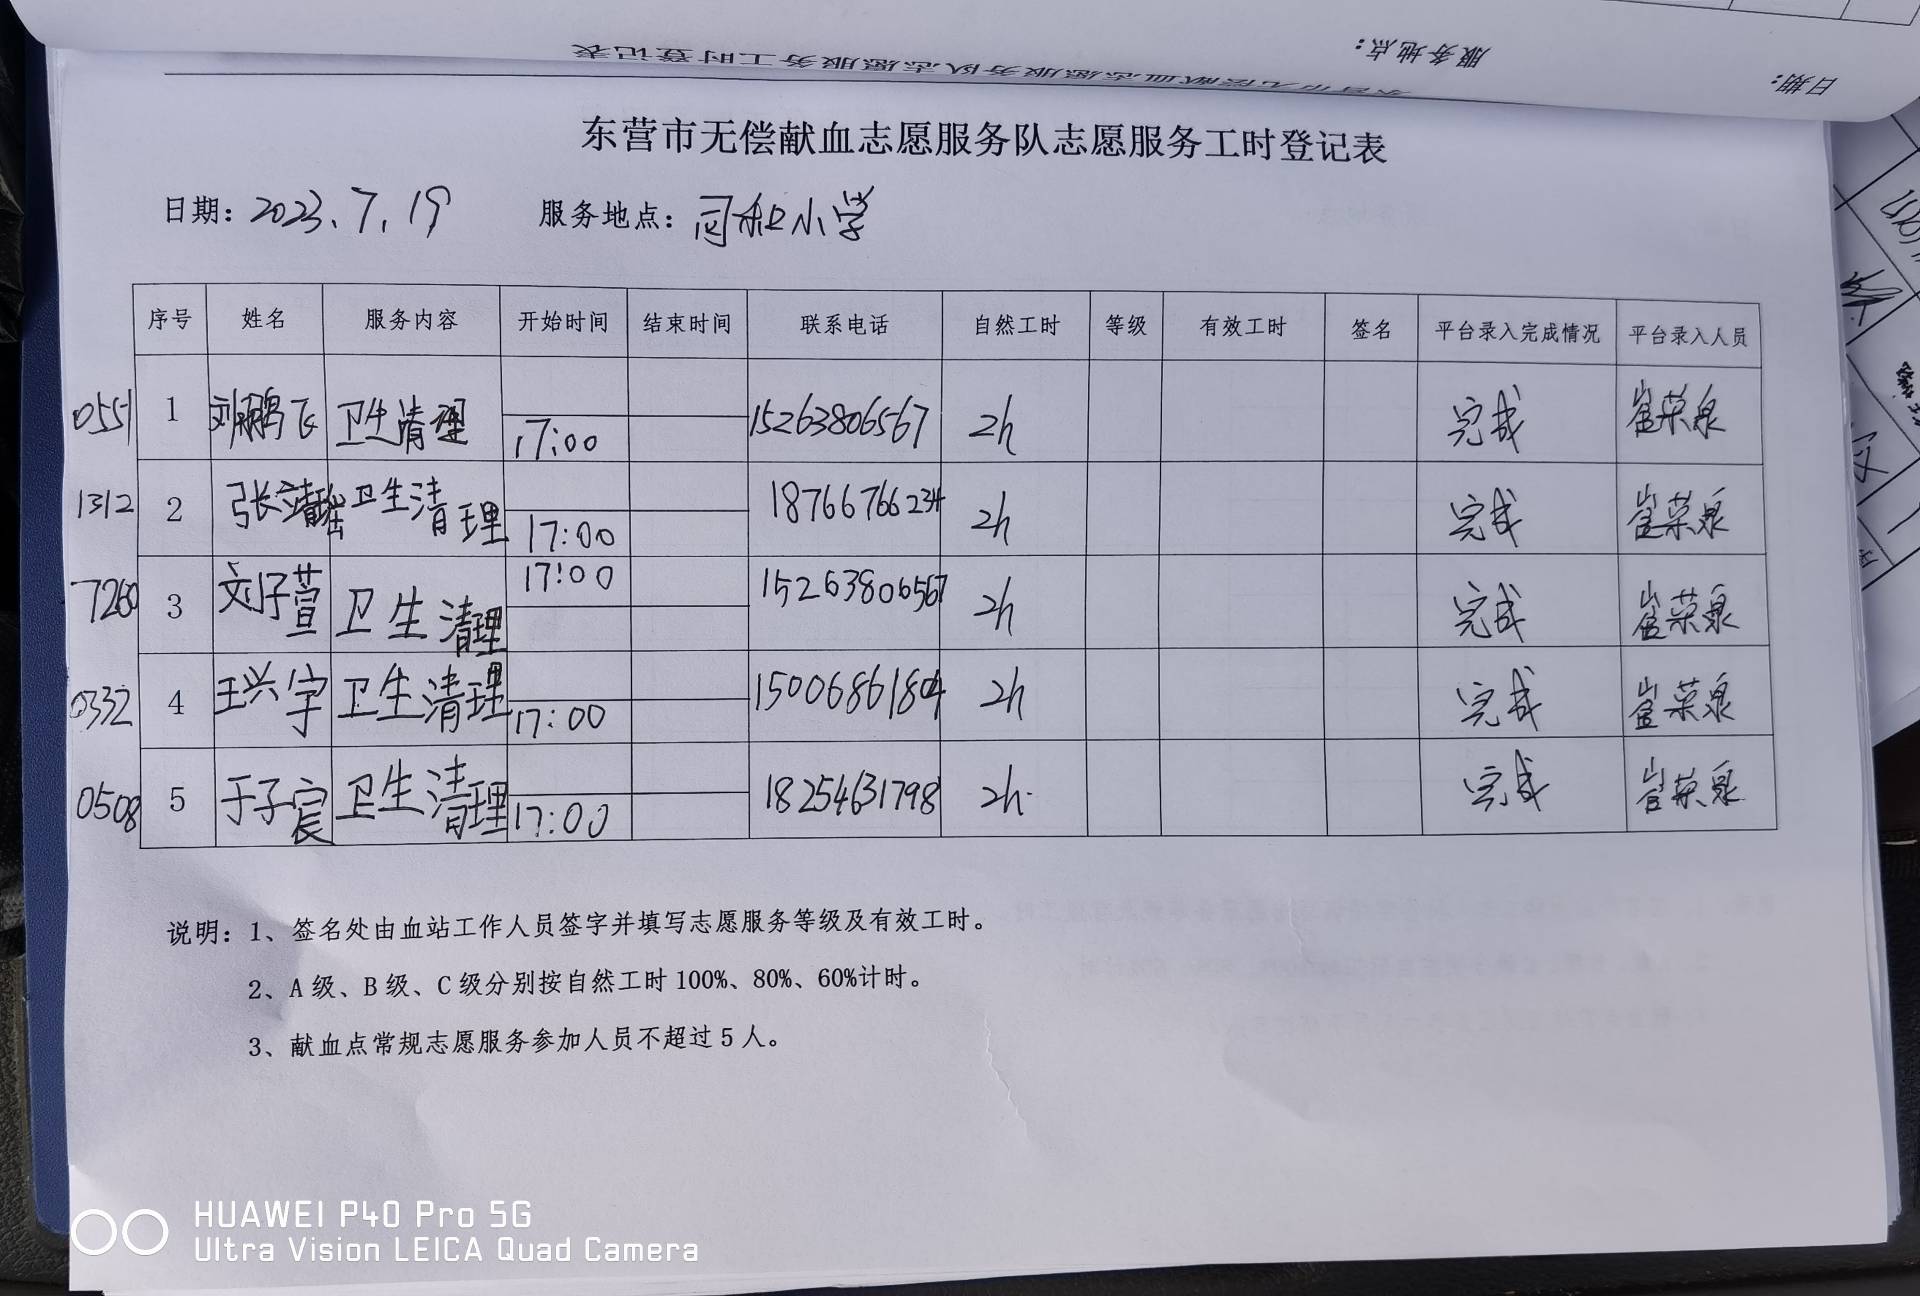 服务地点：
日期：
东营市无偿献血志愿服务队志愿服务工时登记表
东营市无偿献血志愿服务队志愿服务工时登记表
日期：2023.7.19 服务地点：同和小学
序号 姓名 服务内容 开始时间 结束时间 联系电话 自然工时 等级 有效工时 签名 平台录入完成情况 平台录入人员
0551 1 刘鹏飞 卫生清理 17:00 15263806567 2h 完成 崔荣泉
1312 2 张靖瑶 卫生清理 17:00 18766766234 2h 完成 崔荣泉
7260 3 刘子萱 卫生清理 17:00 15263806567 2h 完成 崔荣泉
0332 4 王兴宇 卫生清理 17:00 15006861804 2h 完成 崔荣泉
0508 5 于子宸 卫生清理 17:00 18254631798 2h 完成 崔荣泉
说明：1、签名处由血站工作人员签字并填写志愿服务等级及有效工时。
2、A级、B级、C级分别按自然工时100%、80%、60%计时。
3、献血点常规志愿服务参加人员不超过5人。
HUAWEI P40 Pro 5G
Ultra Vision LEICA Quad Camera